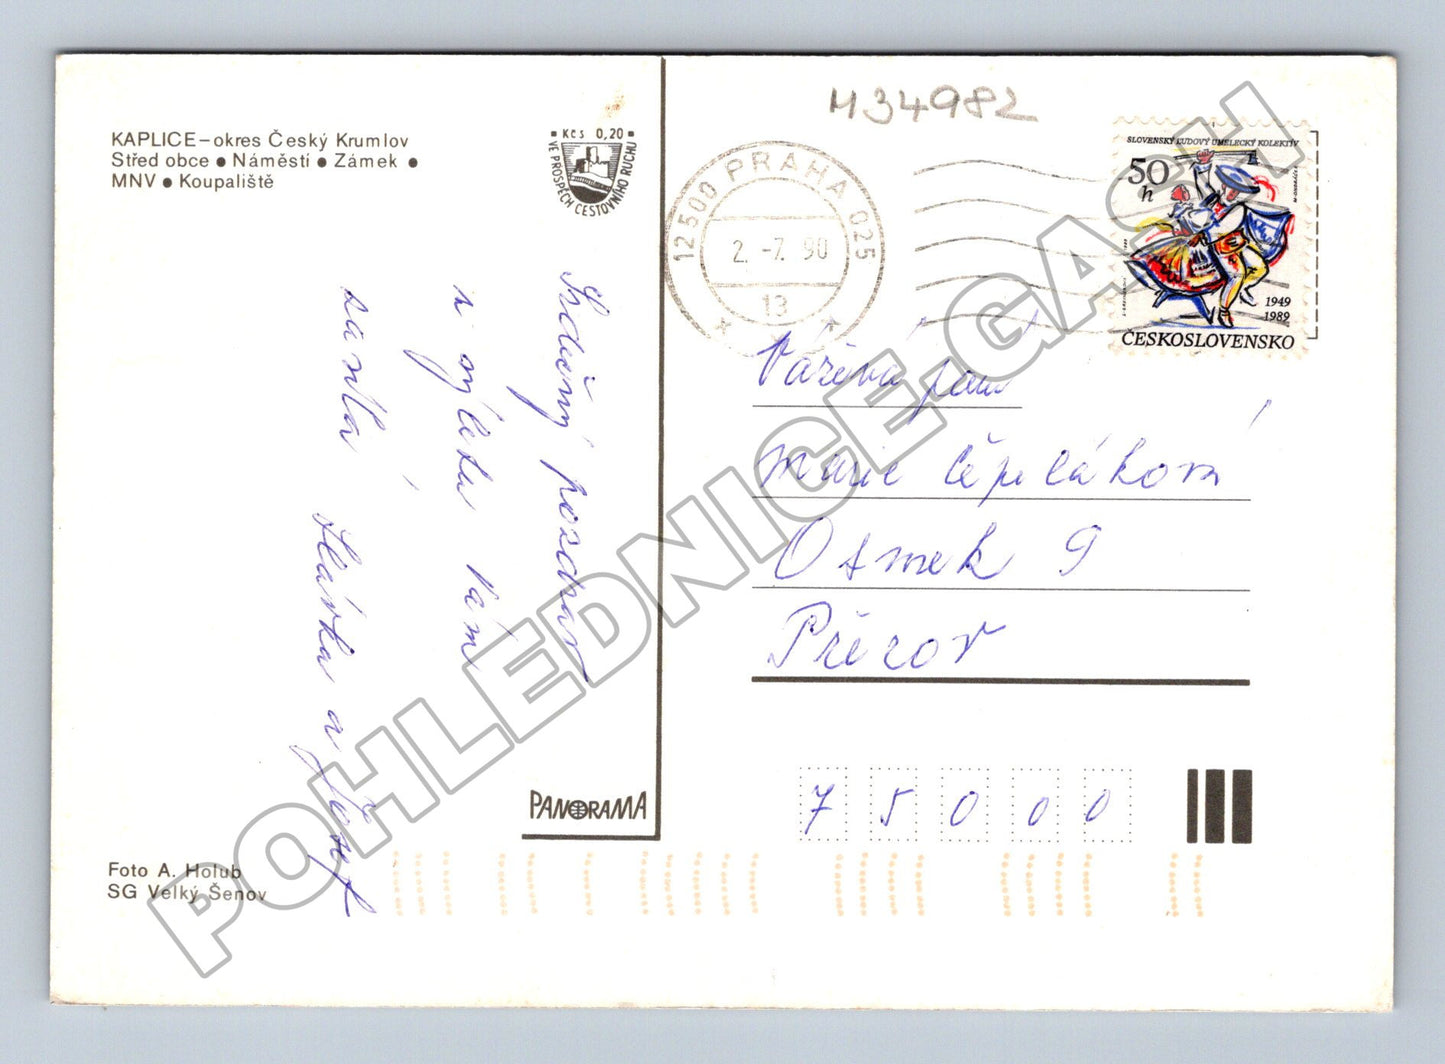 KAPLICE – okres Český Krumlov
Střed obce ● Náměstí ● Zámek ●
MNV ● Koupaliště
Kčs 0,20
VE PROSPĚCH CESTOVNÍHO RUCHU
Srdečný pozdrav
z výletu Vám
Slávka a Josef
PANORAMA
Foto A. Holub
SG Velký Šenov
M34982
12500 PRAHA 025
2. -7. 90
13
SLOVENSKÝ ĽUDOVÝ UMELECKÝ KOLEKTÍV
50
h
1949
1989
ČESKOSLOVENSKO
Vážená paní
Marie Čépeláková
Osmek 9
Přerov
75000
POHLEDNICE.CASH